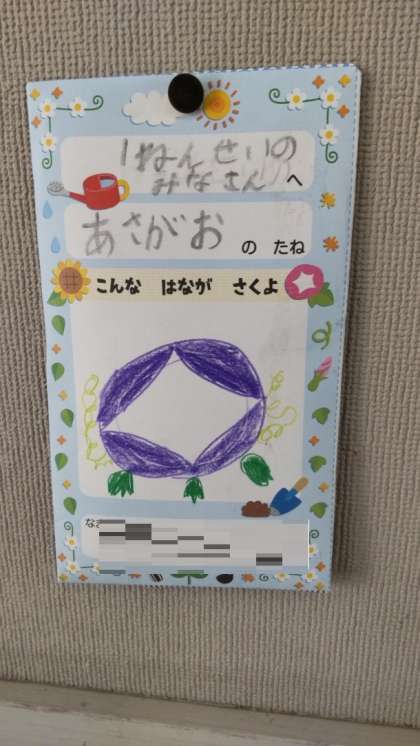 1ねんせいの
みなさん へ
あさがお の たね
こんな はなが さくよ